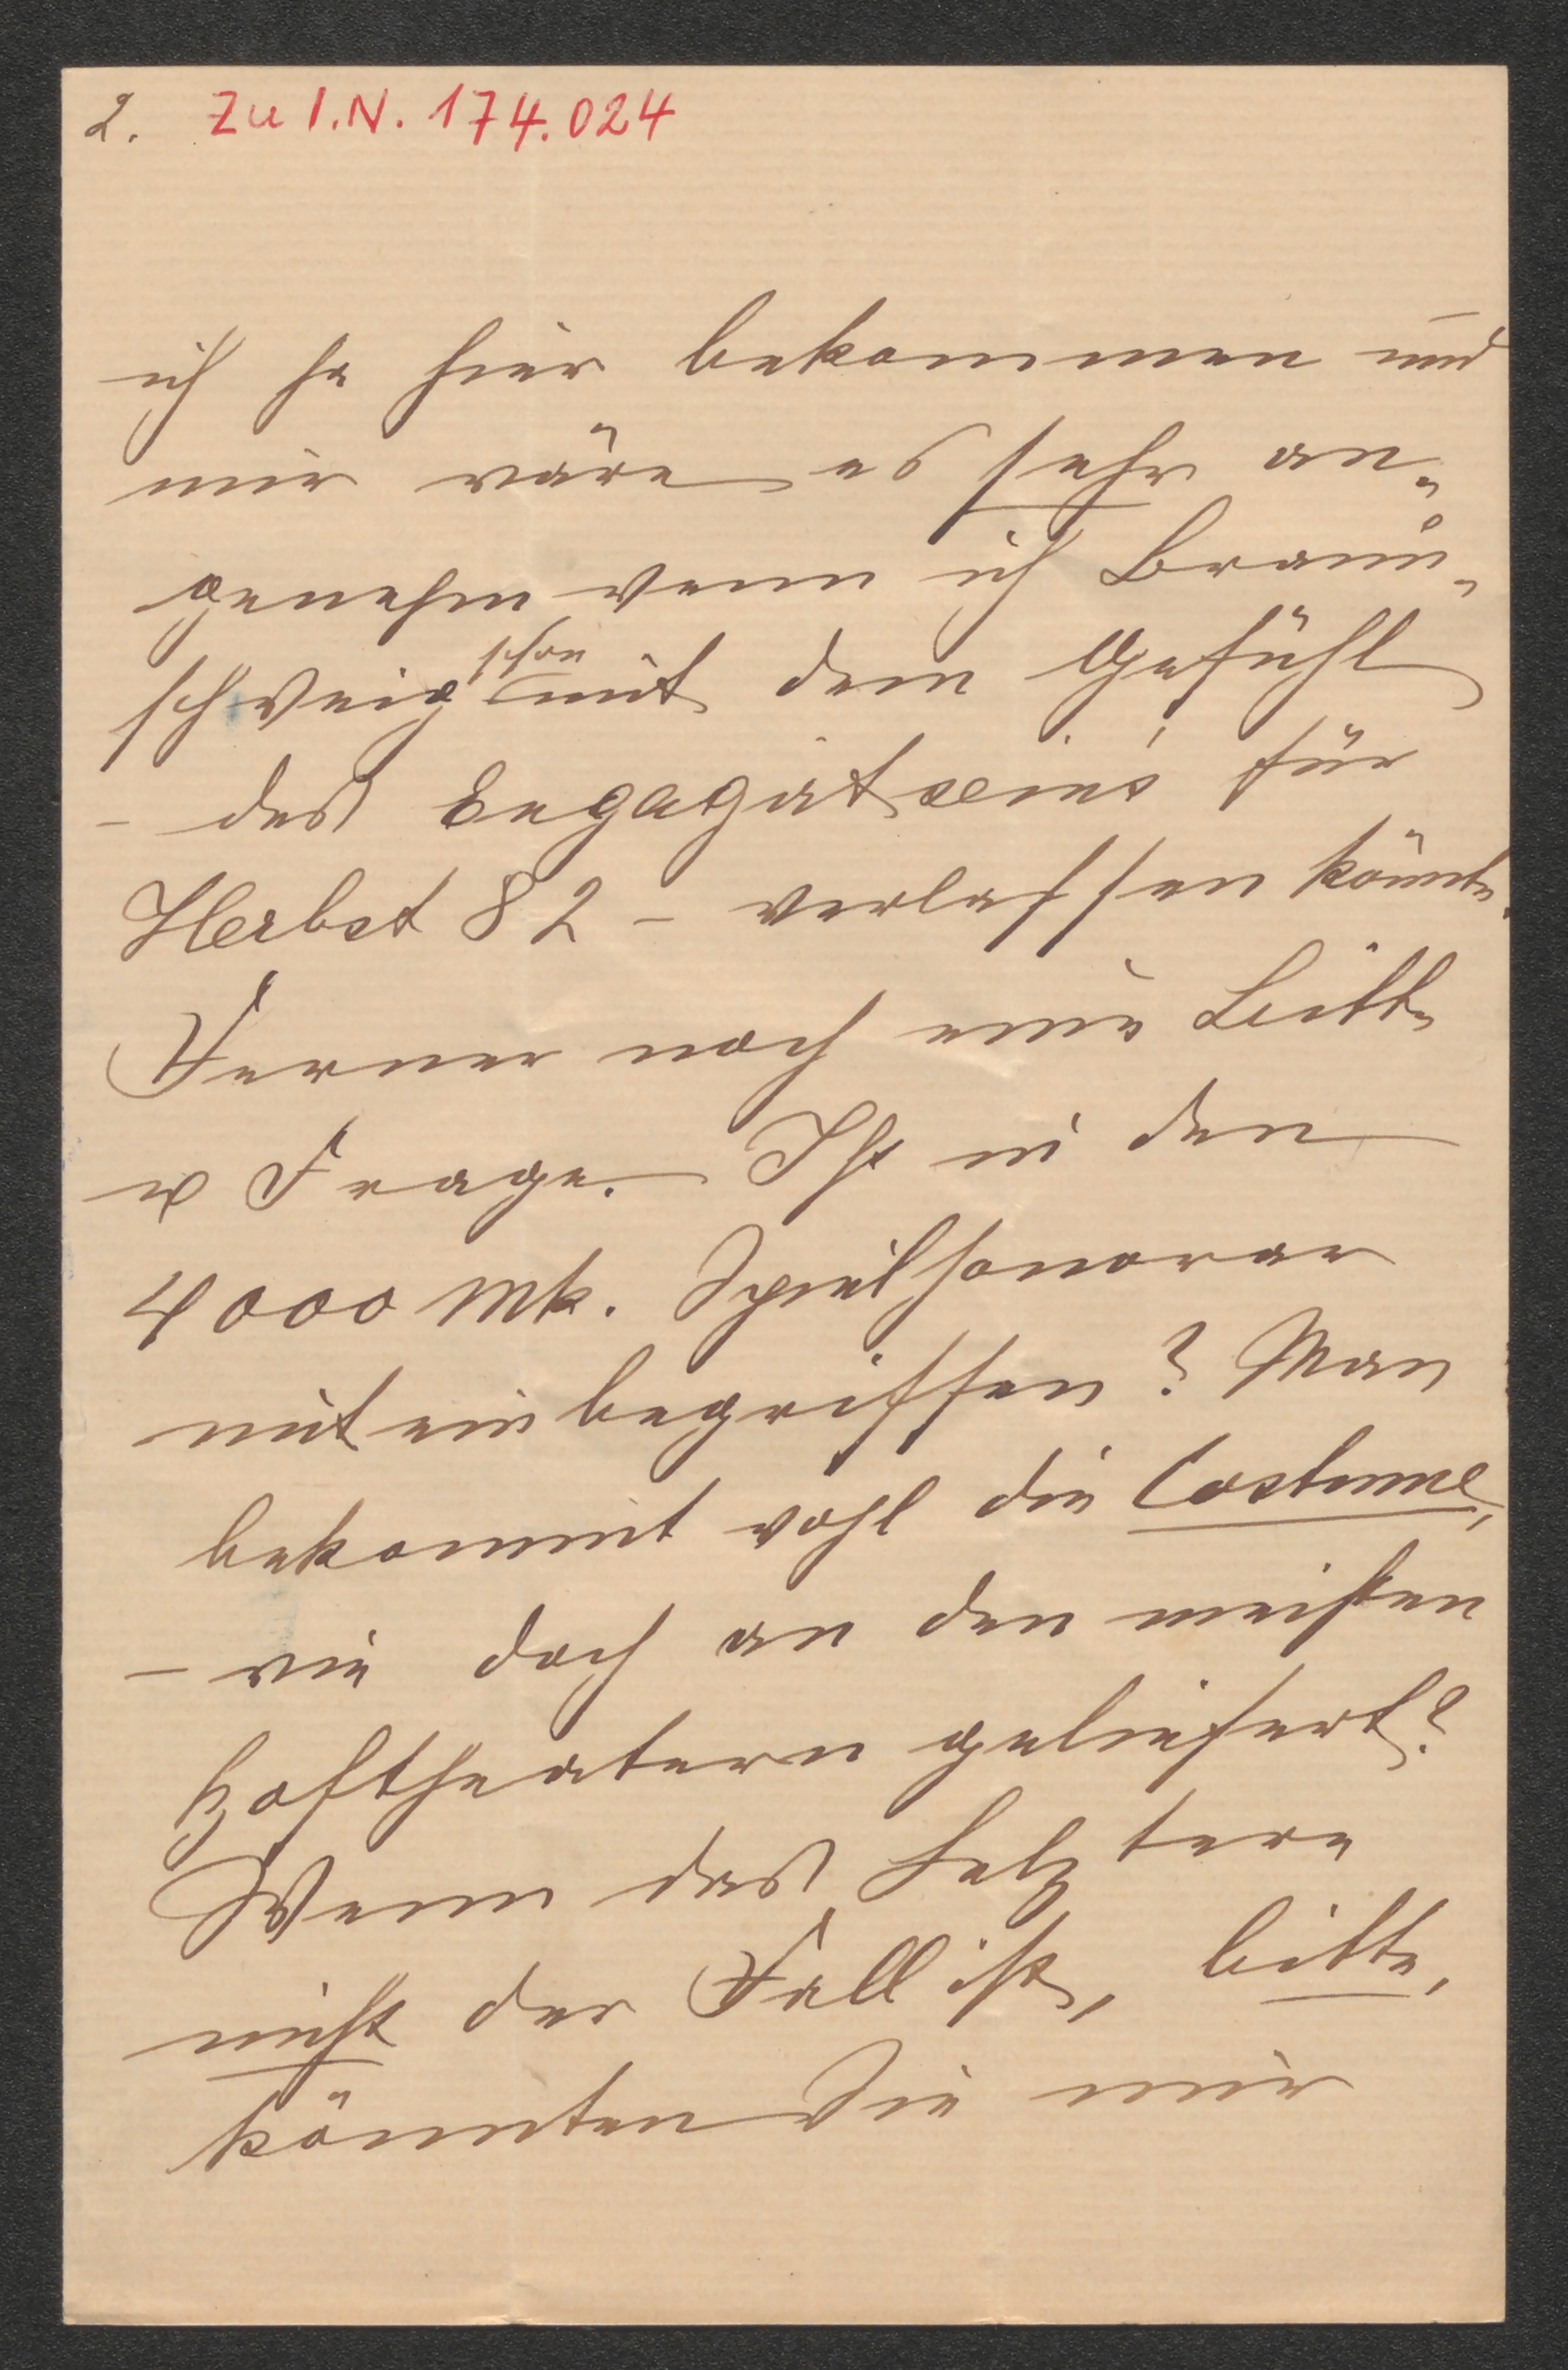 2. Zu I.N. 174.024
ich so hier bekommen und
mir wäre es sehr an-
genehm wenn ich Braun-
schweig schon mit dem Gefühl
- des Engagirtseins für
Herbst 82 - verlassen könnte.
Ferner noch eine Bitte
u Frage. Ist in den
4000 Mk. Spielhonorar
mit einbegriffen? Man
bekommt wohl die Costume,
- wie doch an den meisten
Hoftheatern geliefert?
Wenn das Letztere
nicht der Fall ist, bitte,
könnten Sie mir